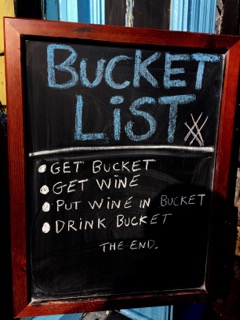 BUCKET
LIST
• GET BUCKET
• GET WINE
• PUT WINE IN BUCKET
• DRINK BUCKET
THE END.